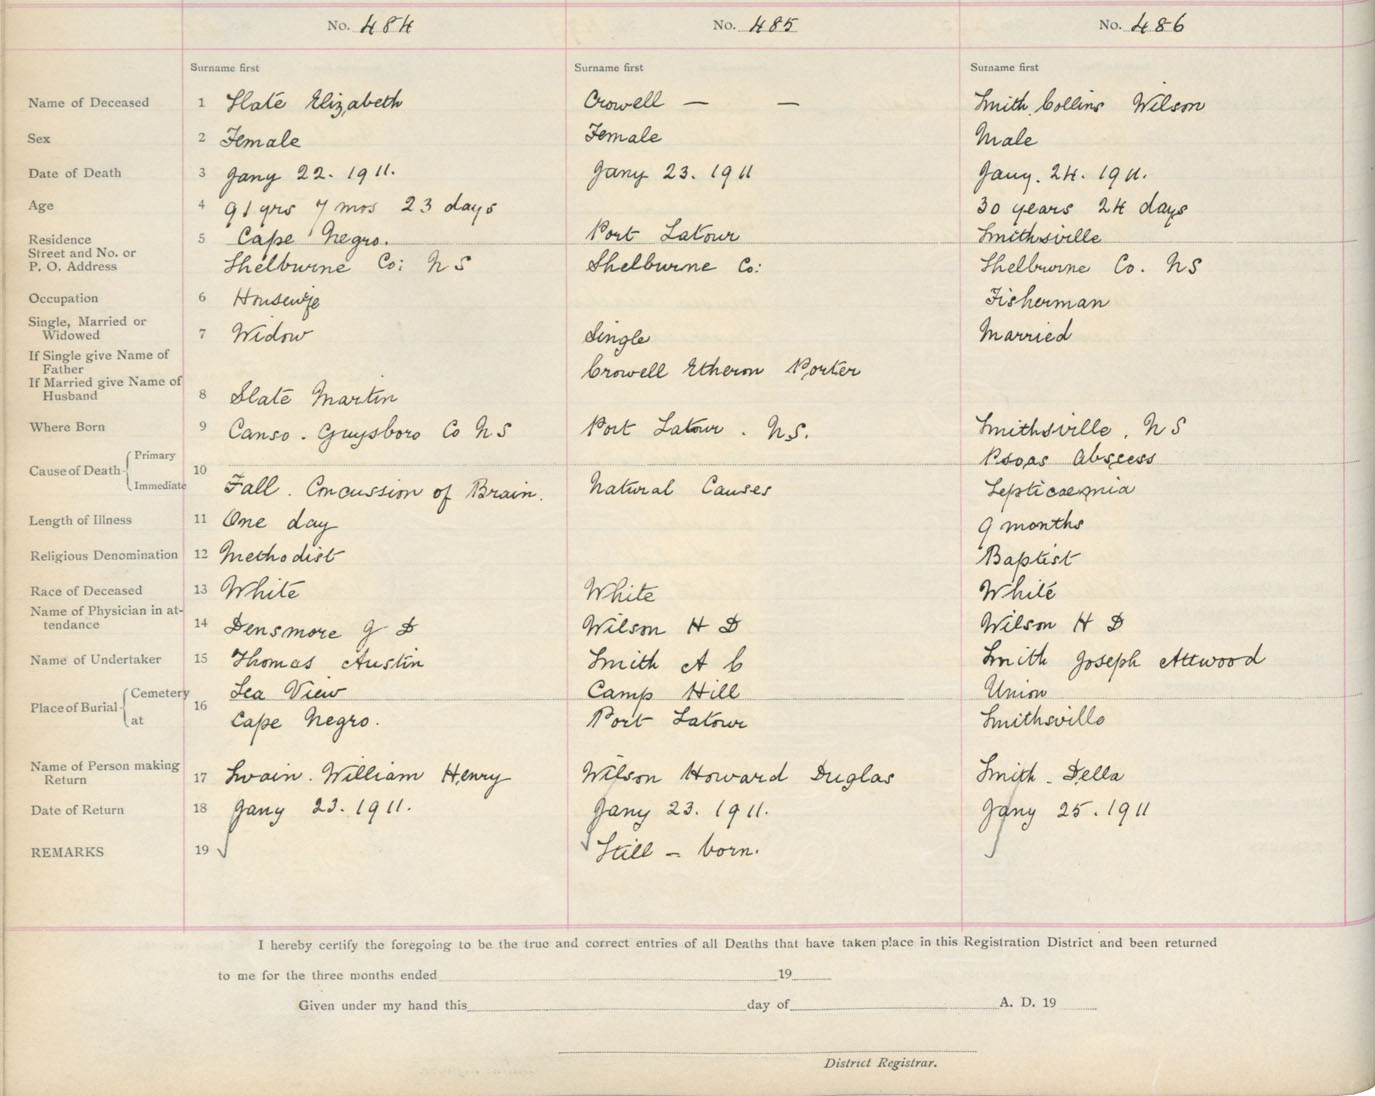 No. 484 No. 485 No. 486
Surname first Surname first Surname first
Name of Deceased 1 Slate Elizabeth Crowell — — Smith Collins Wilson
Sex 2 Female Female Male
Date of Death 3 Jany 22. 1911. Jany 23. 1911 Jany. 24. 1911.
Age 4 91 yrs 7 mos 23 days 30 years 24 days
Residence 5 Cape Negro. Port Latour Smithsville
Street and No. or
P. O. Address Shelburne Co: NS Shelburne Co: Shelburne Co. NS
Occupation 6 Housewife Fisherman
Single, Married or
Widowed 7 Widow Single Married
If Single give Name of
Father Crowell Etheron Porter
If Married give Name of
Husband 8 Slate Martin
Where Born 9 Canso. Guysboro Co NS Port Latour. N.S. Smithsville. NS
Cause of Death 10 Primary Psoas Abscess
Immediate Fall. Concussion of Brain. Natural Causes Septicaemia
Length of Illness 11 One day 9 months
Religious Denomination 12 Methodist Baptist
Race of Deceased 13 White White White
Name of Physician in at-
tendance 14 Densmore G D Wilson H D Wilson H D
Name of Undertaker 15 Thomas Austin Smith A C Smith Joseph Attwood
Place of Burial 16 Cemetery Sea View Camp Hill Union
at Cape Negro. Port Latour Smithsville
Name of Person making
Return 17 Swain. William Henry Wilson Howard Duglas Smith. Della
Date of Return 18 Jany 23. 1911. Jany 23. 1911. Jany 25. 1911
REMARKS 19 Still – born.
I hereby certify the foregoing to be the true and correct entries of all Deaths that have taken place in this Registration District and been returned
to me for the three months ended 19
Given under my hand this day of A. D. 19
District Registrar.